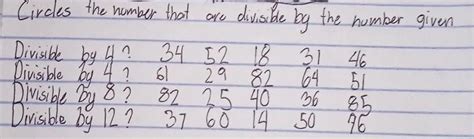 Circles the number that are divisible by the number given
Divisible by 4? 34 52 18 31 46
Divisible by 4? 61 29 82 64 51
Divisible by 8? 82 25 40 36 85
Divisible by 12? 37 60 14 50 76